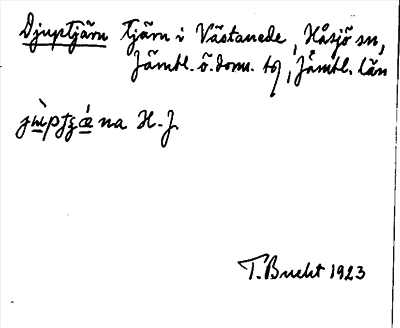 Djuptjärn tjärn i Västanede, Håsjö sn,
Jämtl. ö. doms. tg, Jämtl. län
na H.J.
T. Bucht 1923